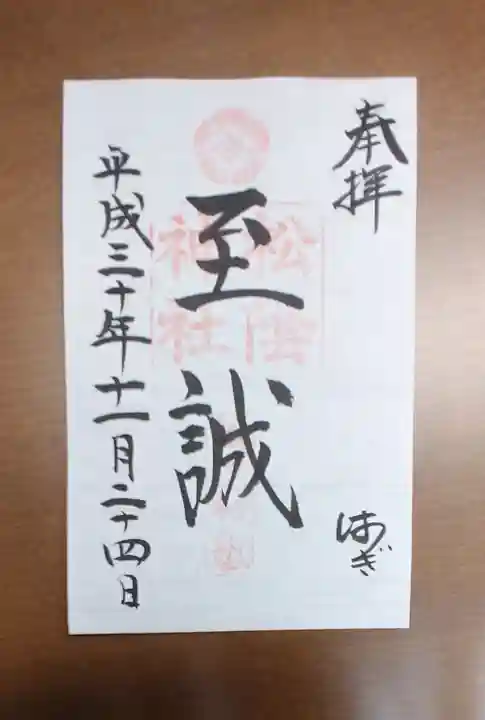 奉拝
はぎ
至誠
松陰
神社
平成三十年十一月二十四日